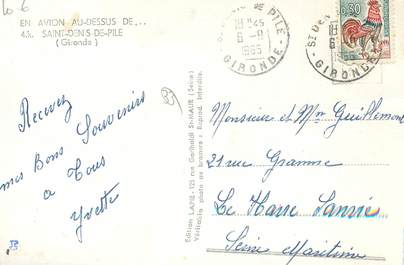 10-6
EN AVION AU-DESSUS DE...
4.- SAINT-DENIS-DE-PILE
(Gironde)
Recevez
mes Bons Souvenirs
a Tous
Yvette
Edition LAPIE - 125 rue Garibaldi St-MAUR (Seine)
Véritable photo au bromure : Reprod. Interdite.
ST DENIS DE PILE
18H45
6-9
1965
GIRONDE
ST DE
18
6
GIRONDE
0,30
Monsieur et Mme Guillemont
21 rue
Le Havre Sanvic
Seine Maritime